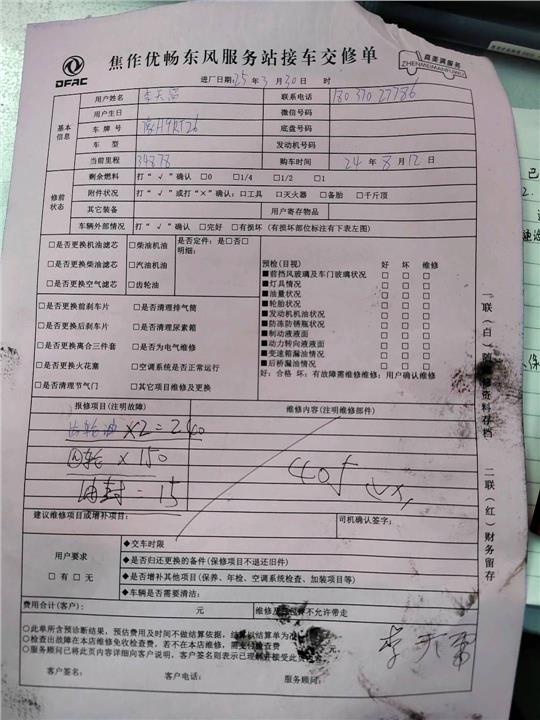 DFAC
焦作优畅东风服务站接车交修单
真美满服务
ZHENMEIMANFUWU
进厂日期:25年3月30日 时
用户姓名 联系电话
用户生日 微信号码
基本信息
车牌号 底盘号码
车 型 发动机号码
当前里程 34878 购车时间 24年8月12日
修前状态
剩余燃料 打“√”确认 □0 □1/4 □1/2 □1
附件状况 打“√”或打“×”确认:□工具 □灭火器 □备胎 □千斤顶
其它装备 用户寄存物品
车辆外部情况 打“√”确认 □完好 □有损坏(有损坏部位标注有下表左图)
□是否更换机油滤芯 □柴油机油 是否定件:是□否□
明细:
□是否更换柴油滤芯 □汽油机油
□是否更换空气滤芯 □齿轮油
预检(目视) 好 坏 维修
■前挡风玻璃及车门玻璃状况 □ □ □
■灯具情况 □ □ □
■油量状况 □ □ □
■轮胎状况 □ □ □
■发动机机油状况 □ □ □
■防冻防锈瓶状况 □ □ □
■制动液液面 □ □ □
■动力转向液液面 □ □ □
■变速箱漏油情况 □ □ □
■后桥漏油情况 □ □ □
好:合格 坏:有故障需维修维修:用户确认维修
□是否更换前刹车片 □是否清理排气筒
□是否更换后刹车片 □是否清理尿素箱
□是否更换离合三件套 □是否为电气维修
□是否更换火花塞 □空调系统是否正常运行
□是否清理节气门 □其它项目维修及更换
报修项目(注明故障) 维修内容(注明维修部件)
齿轮油 ×2=240
轮 ×150
油封=15
405
建议维修项目或增补项目: 司机确认签字:
用户要求
□有 □无
◆交车时限
◆是否归还更换的备件(保修项目不退还旧件)
◆是否增补其他项目(保养、年检、空调系统检查、加装项目等)
◆车辆是否需要清洁:
费用合计(客户): 元 维修及 不允许带走
○此单所含预诊断结果,预估费用及时间不做结算依据,结算以结算单为准
○检查出故障在本店维修免收检查费,若不在本店维修,需支付检查费
○服务顾问已将此页内容详细向客户说明,客户签名则表示已理解并接受此
客户签名: 客户电话: 服务顾问:
一联(白)随 修资料存档
二联(红)财务留存